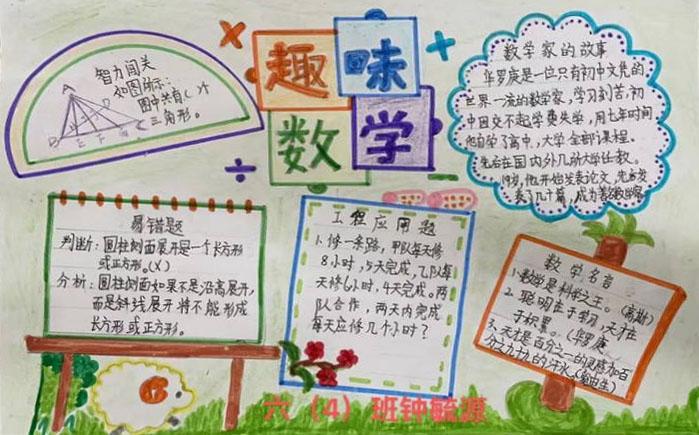 趣味
数学
智力闯关
如图所示:
图中共有( )个
三角形。
A
D
B E F C
数学家的故事
华罗庚是一位只有初中文凭的
世界一流的数学家,学习刻苦,初
中因交不起学费失学,用七年时间
他自学了高中,大学全部课程。
先后在国内外几所大学任教。
19岁,他开始发表论文,先后发
表了几十篇,成为著名数学家
易错题
判断:圆柱侧面展开是一个长方形
或正方形。(×)
分析:圆柱侧面如果不是沿高展开,
而是斜线展开将不能形成
长方形或正方形。
工程应用题
1.修一条路,甲队每天修
8小时,5天完成,乙队每
天修6小时,4天完成。两
队合作,两天内完成
每天应修几个小时?
数学名言
1.数学是科学之王。(高斯)
2.聪明在于学习,天才在
于积累。(华罗庚)
3.天才是百分之一的灵感加百
分之九十九的汗水。(爱迪生)
六（4）班钟毓源